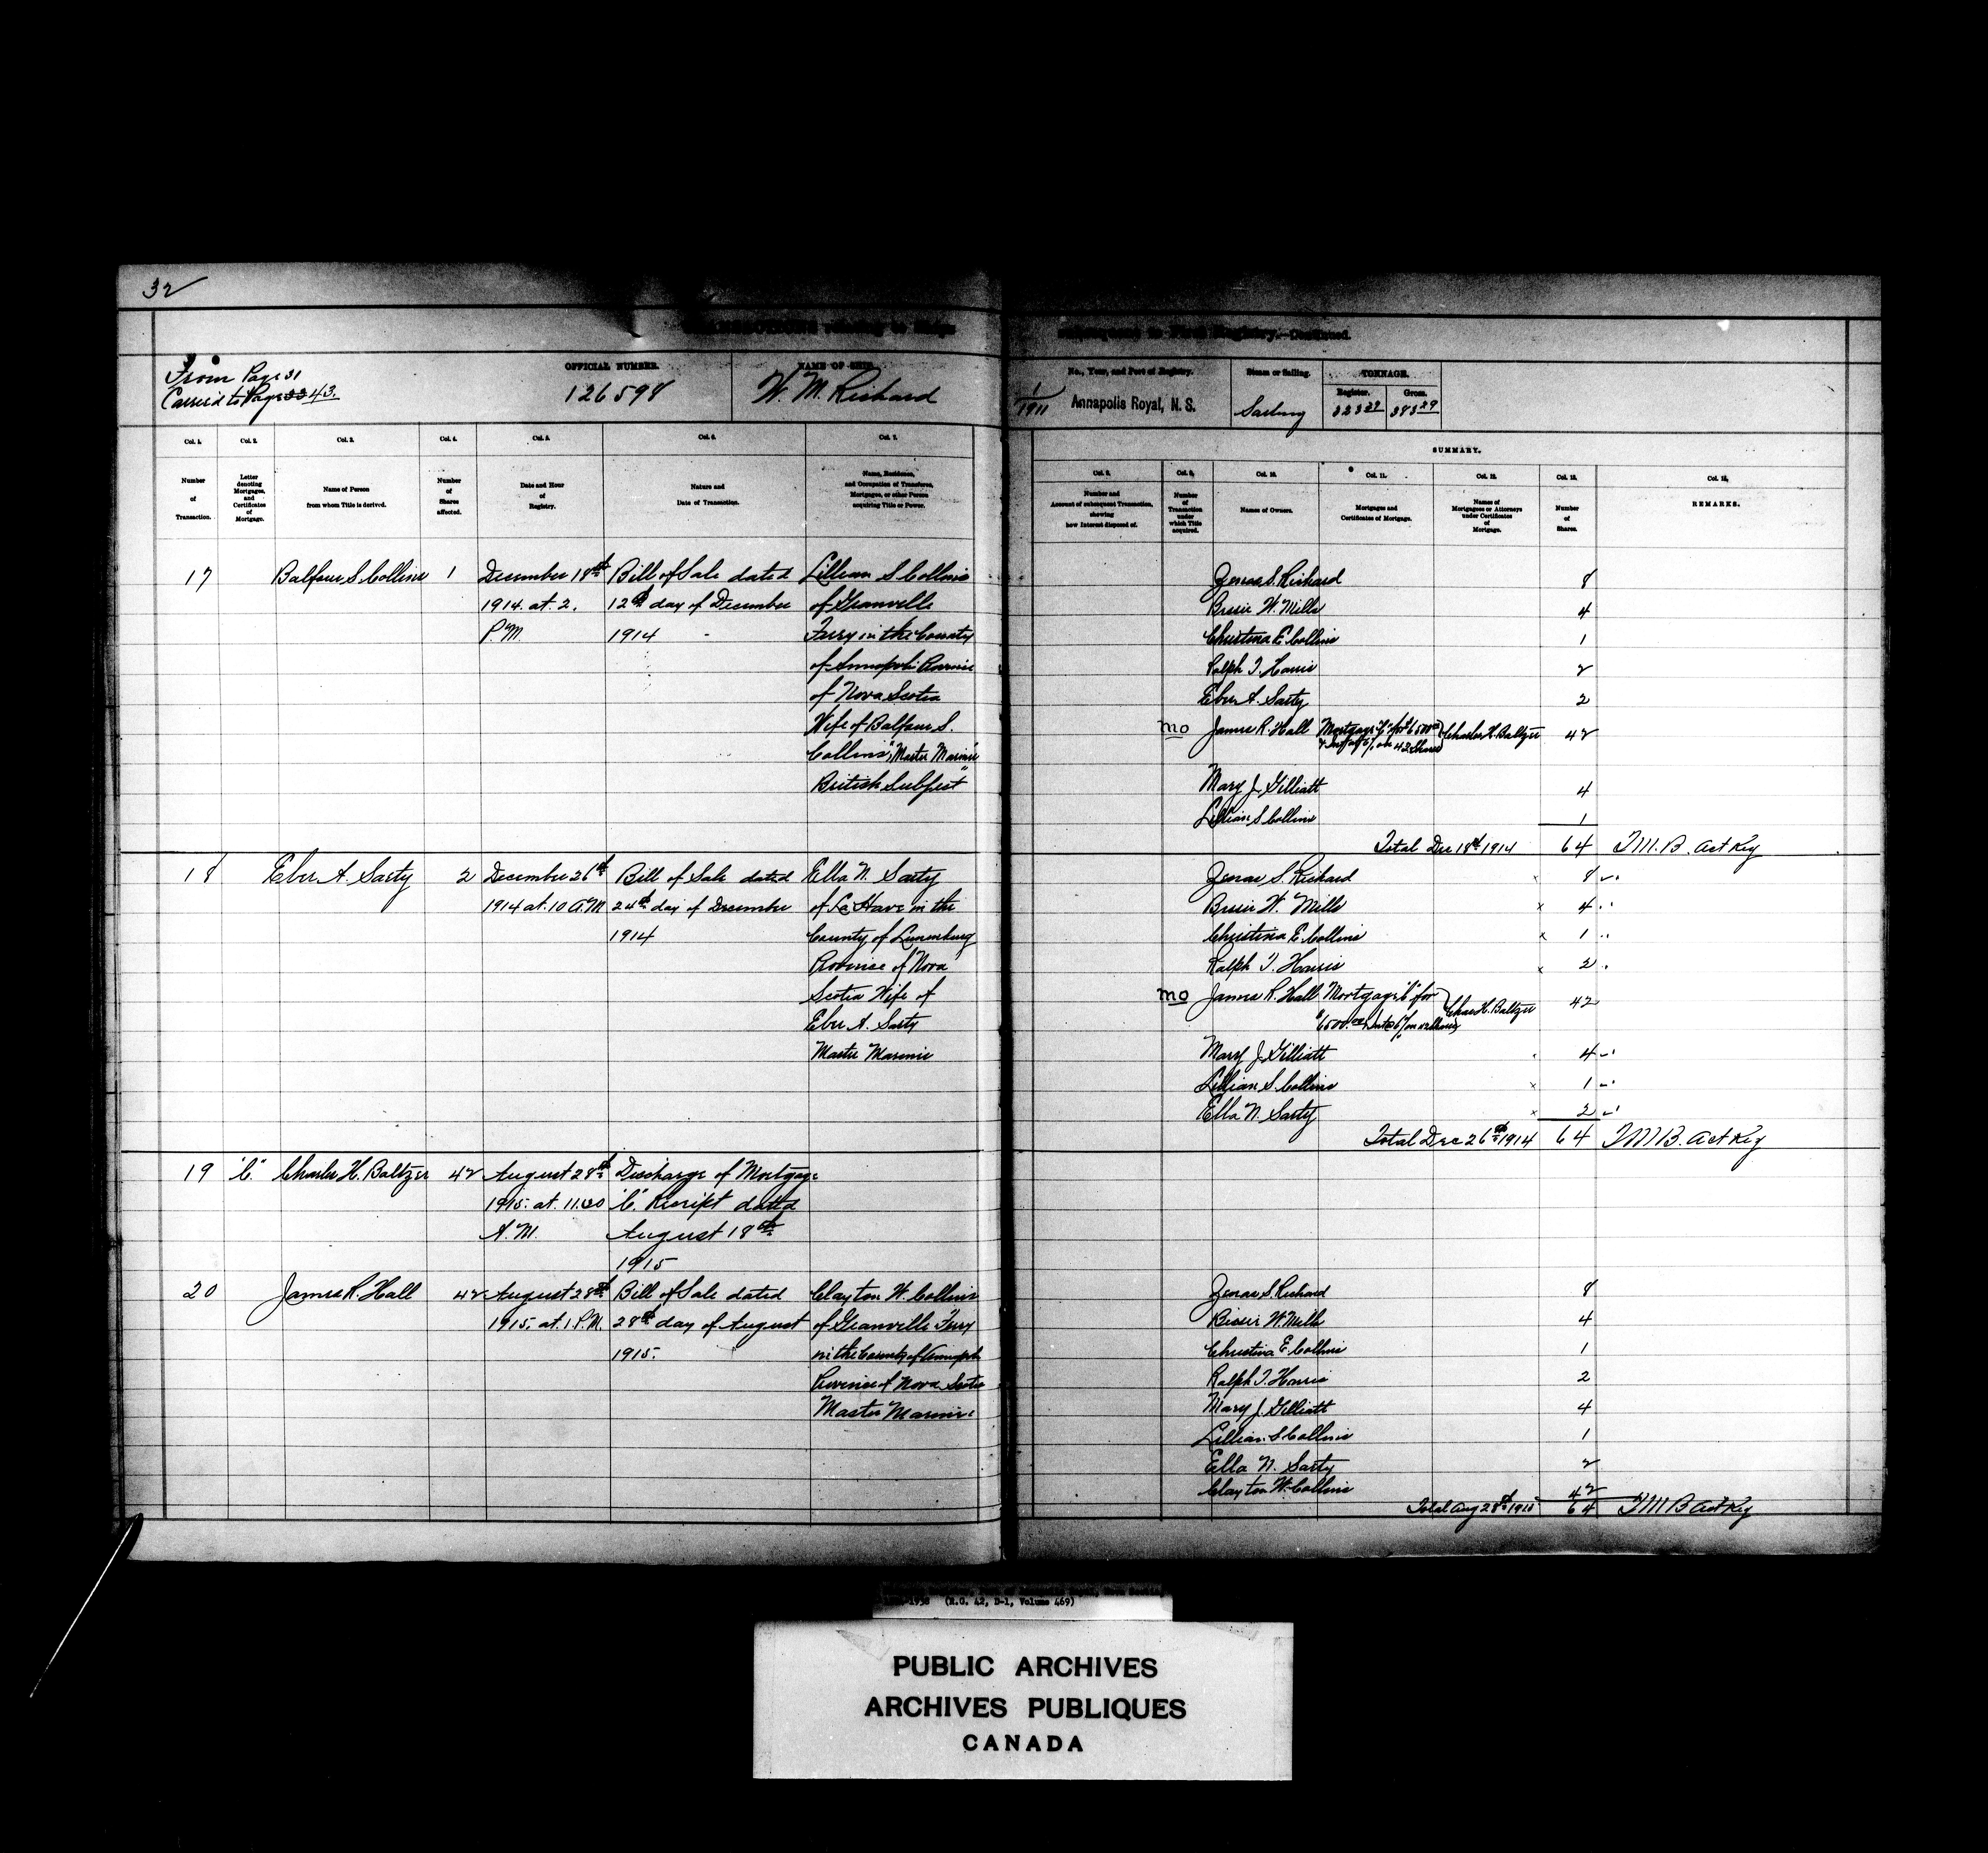 32
TRANSACTIONS relating to Ships
subsequent to First Registry.—Continued.
From Page 31
Carried to Page 33 43.
OFFICIAL NUMBER.
126598
NAME OF SHIP.
W. M. Richard
No., Year, and Port of Registry.
1/1911 Annapolis Royal, N. S.
Steam or Sailing.
Sailing
TONNAGE.
Register. Gross.
323 29 383 29
Col. 1. Col. 2. Col. 3. Col. 4. Col. 5. Col. 6. Col. 7.
Number of Transaction.
Letter denoting Mortgages, and Certificates of Mortgage.
Name of Person from whom Title is derived.
Number of Shares affected.
Date and Hour of Registry.
Nature and Date of Transaction.
Name, Residence, and Occupation of Transferee, Mortgagee, or other Person acquiring Title or Power.
SUMMARY.
Col. 8. Col. 9. Col. 10. Col. 11. Col. 12. Col. 13.
Number and Account of subsequent Transaction, showing how Interest disposed of.
Number of Transaction under which Title acquired.
Names of Owners.
Mortgages and Certificates of Mortgage.
Names of Mortgagees or Attorneys under Certificates of Mortgage.
Number of Shares.
REMARKS.
17 Balfour S. Collins 1 December 18th Bill of Sale dated Lillian S Collins
1914. at 2. 12th day of December of Granville
P.M. 1914 Ferry in the County
of Annapolis Province
of Nova Scotia
Wife of Balfour S.
Collins, "Master Mariner
British Subject"
Zenas S. Richard 8
Bessie W. Mills 4
Christina E. Collins 1
Ralph T. Harris 2
Eber A. Sarty 2
mo James R. Hall Mortgage "C" for $6500 00 Charles H. Baltzer 42
& Int at 6% on 42 Shares
Mary J. Gilliatt 4
Lillian S Collins 1
Total Dec 18th 1914 64 T.M.B. Act Reg
18 Eber A. Sarty 2 December 26th Bill of Sale dated Ella N. Sarty
1914 at 10 A.M 24th day of December of La Have in the
1914 County of Lunenburg
Province of Nova
Scotia Wife of
Eber A. Sarty
Master Mariner
Zenas S. Richard 8
Bessie W. Mills 4
Christina E. Collins 1
Ralph T. Harris 2
mo James R. Hall Mortgage "C" for Chas H. Baltzer 42
$6500.00 Int @ 6% on 42 Shares
Mary J. Gilliatt 4
Lillian S. Collins 1
Ella N. Sarty 2
Total Dec 26th 1914 64 T.M.B. Act Reg
19 "C" Charles H. Baltzer 42 August 28th Discharge of Mortgage
1915. at 11.30 "C". Receipt dated
A.M. August 18th
1915
20 James R. Hall 42 August 28th Bill of Sale dated Clayton W. Collins
1915, at 1 P.M. 28th day of August of Granville Ferry
1915. in the County of Annapolis
Province of Nova Scotia
Master Mariner
Zenas S. Richard 8
Bessie W. Mills 4
Christina E. Collins 1
Ralph T. Harris 2
Mary J. Gilliatt 4
Lillian S Collins 1
Ella N. Sarty 2
Clayton W. Collins 42
Total Aug 28th 1915 64 T.M.B Act Reg
1938 (R.G. 42, D-1, Volume 469)
PUBLIC ARCHIVES
ARCHIVES PUBLIQUES
CANADA